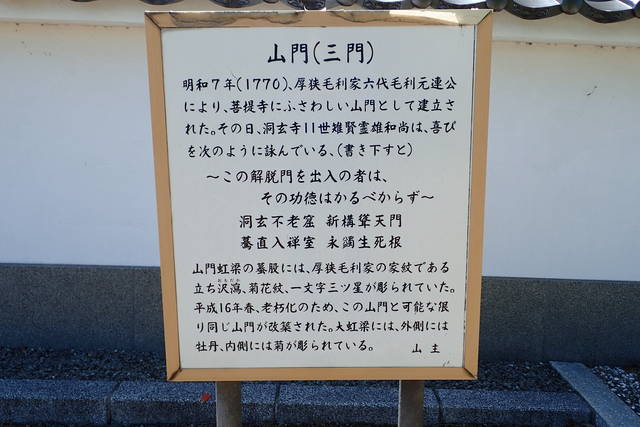 山門(三門)
明和7年(1770)、厚狭毛利家六代毛利元連公
により、菩提寺にふさわしい山門として建立さ
れた。その日、洞玄寺11世雄賢霊雄和尚は、喜び
を次のように詠んでいる、(書き下すと)
～この解脱門を出入の者は、
その功徳はかるべからず～
洞玄不老窟 新構聳天門
驀直入禅室 永蠲生死根
山門虹梁の蟇股には、厚狭毛利家の家紋である
立ち沢瀉、菊花紋、一文字三ツ星が彫られていた。
平成16年春、老朽化のため、この山門と可能な限
り同じ山門が改築された。大虹梁には、外側には
牡丹、内側には菊が彫られている。 山主